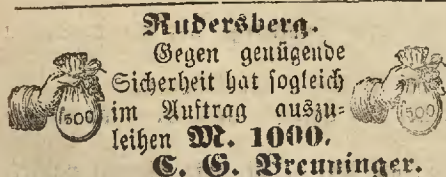 Rudersberg.
Gegen genügende
Sicherheit hat sogleich
im Auftrag auszu-
leihen M. 1000.
C. G. Breuninger.
500
500